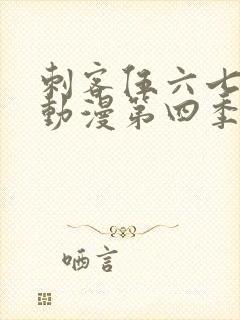 刺客伍六七
動漫第四季
哂言